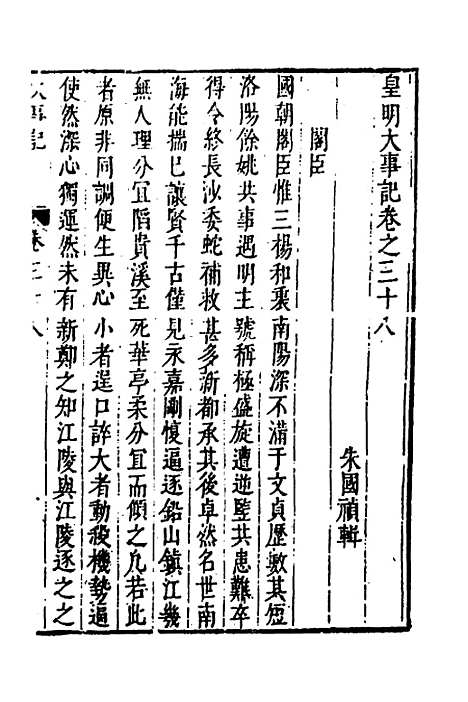 皇明大事記卷之三十八
朱國禎輯
閣臣
國朝閣臣惟三楊和衷南陽深不滿于文貞歷數其短
洛陽餘姚共事遇明主號稱極盛旋遭逆豎共患難卒
得令終長沙委蛇補救甚多新都承其後卓然名世南
海能揣已讓賢千古僅見永嘉剛愎逼逐鉛山鎮江幾
無人理分宜陷貴溪至死華亭柔分宜而傾之凡若此
者原非同調便生異心小者逞口訐大者動殺機勢逼
使然深心獨運然未有新鄭之知江陵與江陵逐之之
大事記
卷三十八